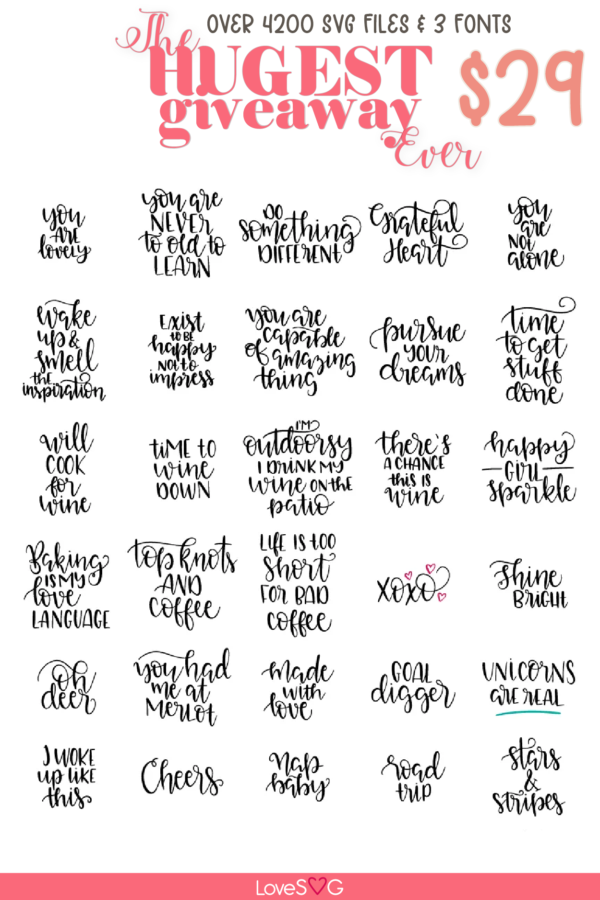 OVER 4200 SVG FILES & 3 FONTS
The
HUGEST
giveaway
Ever
$29
you
ARE
lovely
you are
NEVER
to old to
LEARN
DO
something
DIFFERENT
Grateful
Heart
you
are
NOT
alone
wake
up &
smell
the
inspiration
EXIST
TO BE
happy
NOT to
impress
you are
capable
of amazing
thing
pursue
YOUR
dreams
time
to get
stuff
done
will
COOK
for
wine
TIME TO
wine
DOWN
I'M
outdoorsy
I DRINK MY
wine ON the
patio
there's
A CHANCE
this is
wine
happy
GIRL
sparkle
Baking
IS MY
love
LANGUAGE
top knots
AND
coffee
LIFE IS too
short
FOR BAD
coffee
xoxo
Shine
BRIGHT
oh
deer
you had
me at
MERLOT
made
with
love
GOAL
digger
UNICORNS
are REAL
I WOKE
up LIKE
this
Cheers
Nap
baby
road
trip
stars
&
stripes
LoveSVG